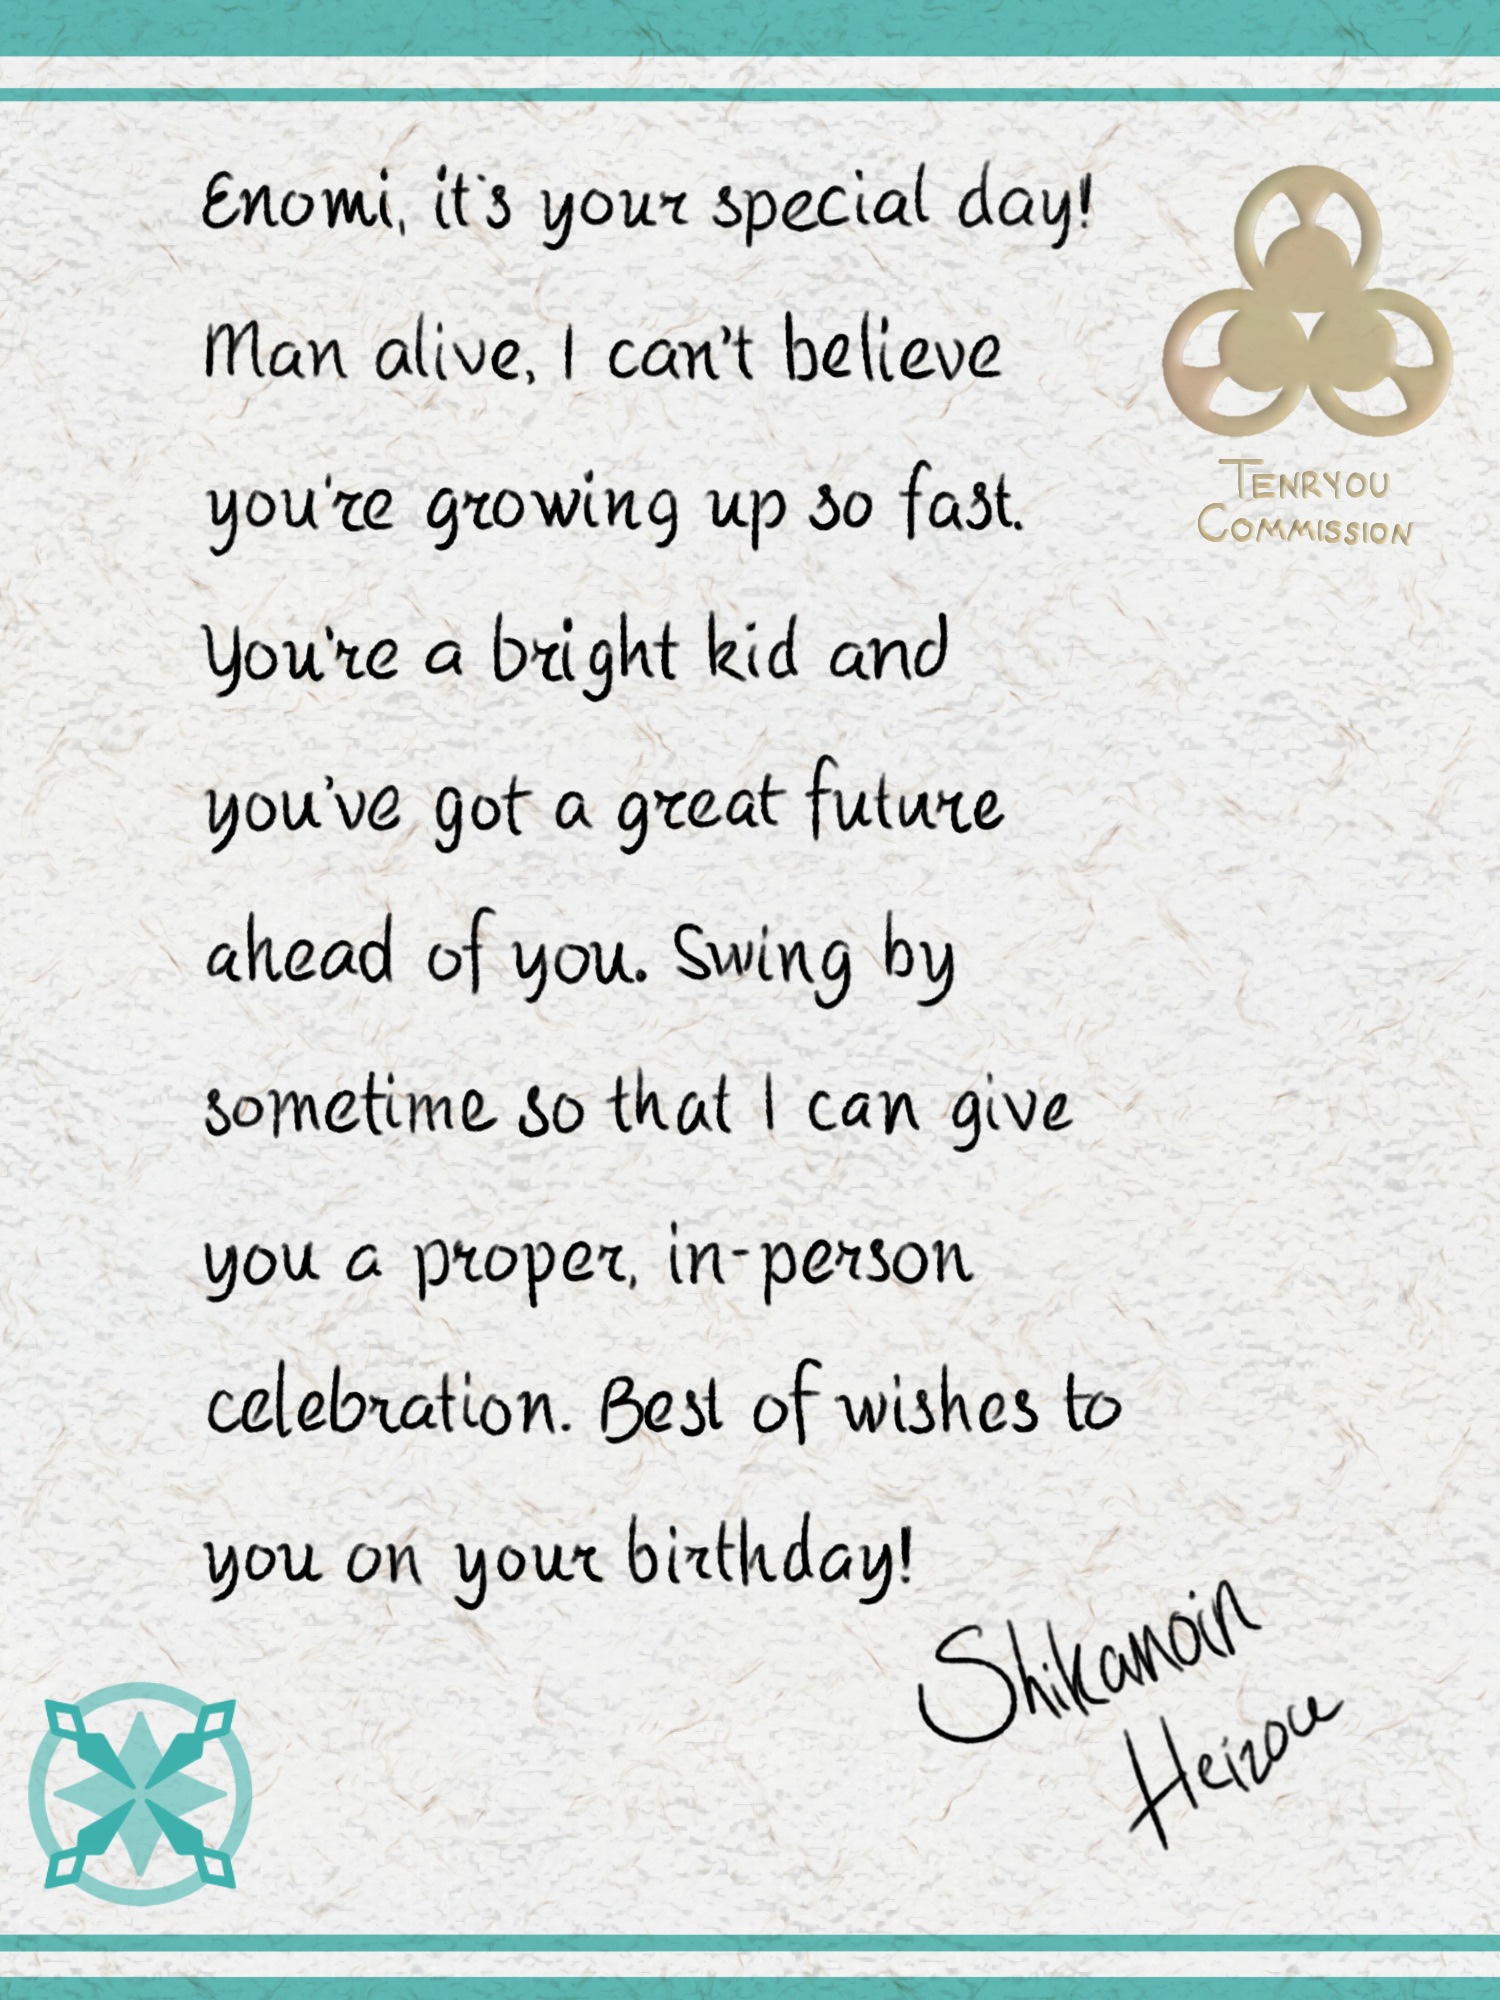 Enomi, it's your special day!
Man alive, I can't believe
you're growing up so fast.
You're a bright kid and
you've got a great future
ahead of you. Swing by
sometime so that I can give
you a proper, in-person
celebration. Best of wishes to
you on your birthday!
Shikanoin
Heizou
TENRYOU
COMMISSION